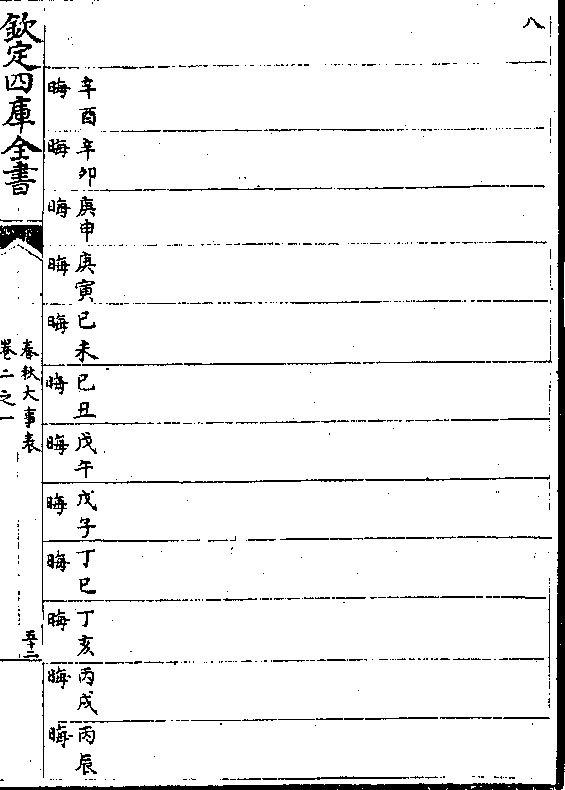 八
辛酉
晦
辛卯
晦
庚申
晦
庚寅
晦
已未
晦
已丑
晦
戊午
晦
戊子
晦
丁巳
晦
丁亥
晦
丙戌
晦
丙辰
晦
欽定四庫全書
春秋大事表
卷二之一
五十二